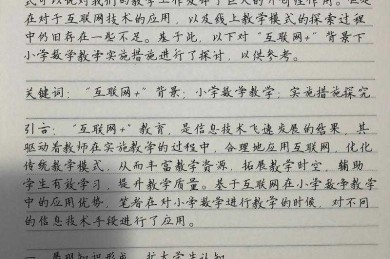 在对于互联网技术的应用，以及线上教学模式的探索过程
中仍旧存在一些不足。基于此，以下对"互联网+"背景下
小学数学教学实施措施进行了探讨，以供参考。
关键词："互联网+"背景；小学数学教学；实施措施探究
引言："互联网+"教育，是信息技术飞速发展的结果，其
驱动着教师在实施教学的过程中，合理地应用互联网，优化
传统教学模式，从而丰富教学资源，拓展教学时空，辅助
学生有效学习，提升教学质量。基于互联网在小学数学教学
中的应用优势，笔者在对小学数学进行教学的时候，对不同
的信息技术手段进行了应用。